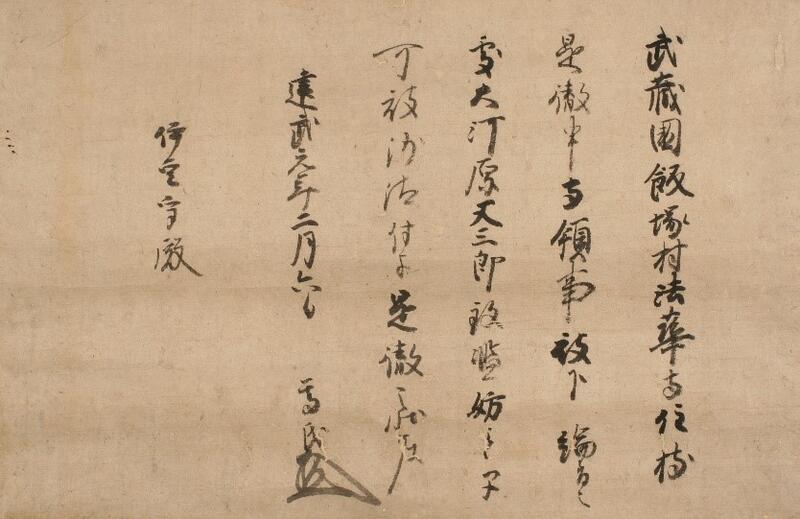 武藏國飯塚村法華寺住持
是徹申寺領事被下 綸旨之
處大河原又三郎致濫妨云々早
可被沙汰付于是徹之状如件
建武元年二月六日 尊氏
伊豆守殿